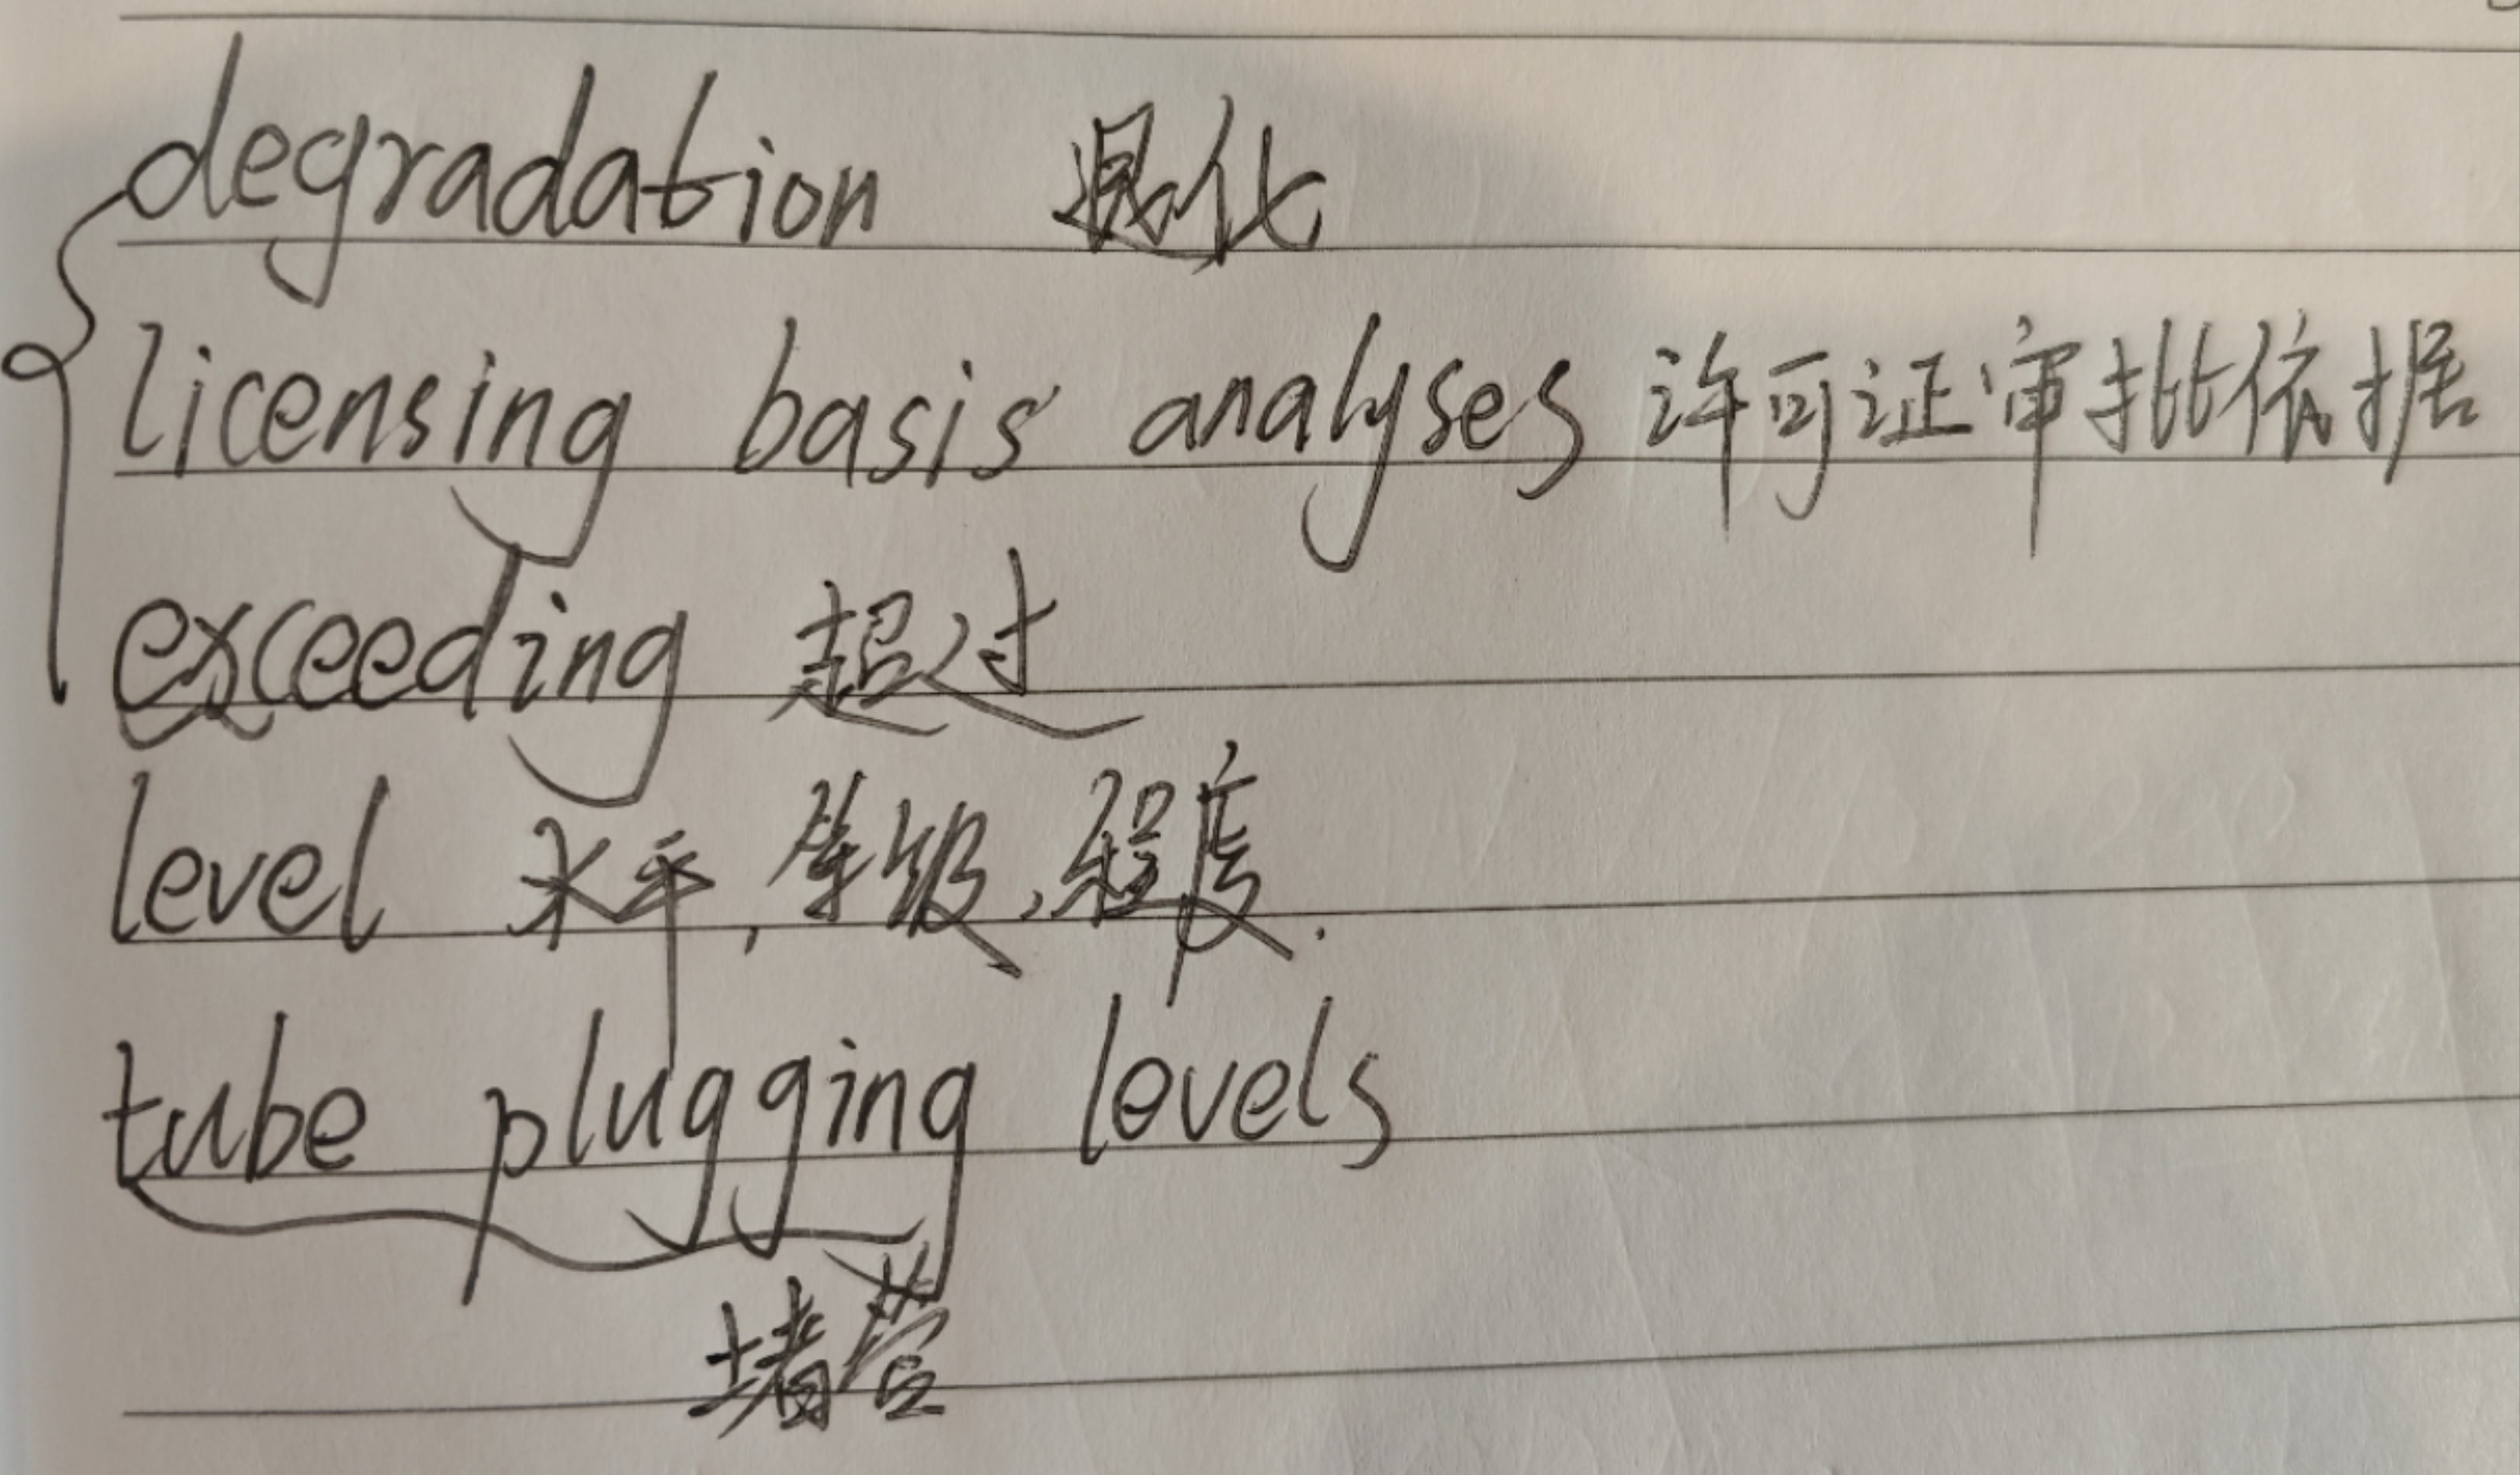 degradation 退化
licensing basis analyses 许可证审批依据
exceeding 超过
level 水平,等级,程度.
tube plugging levels
堵管